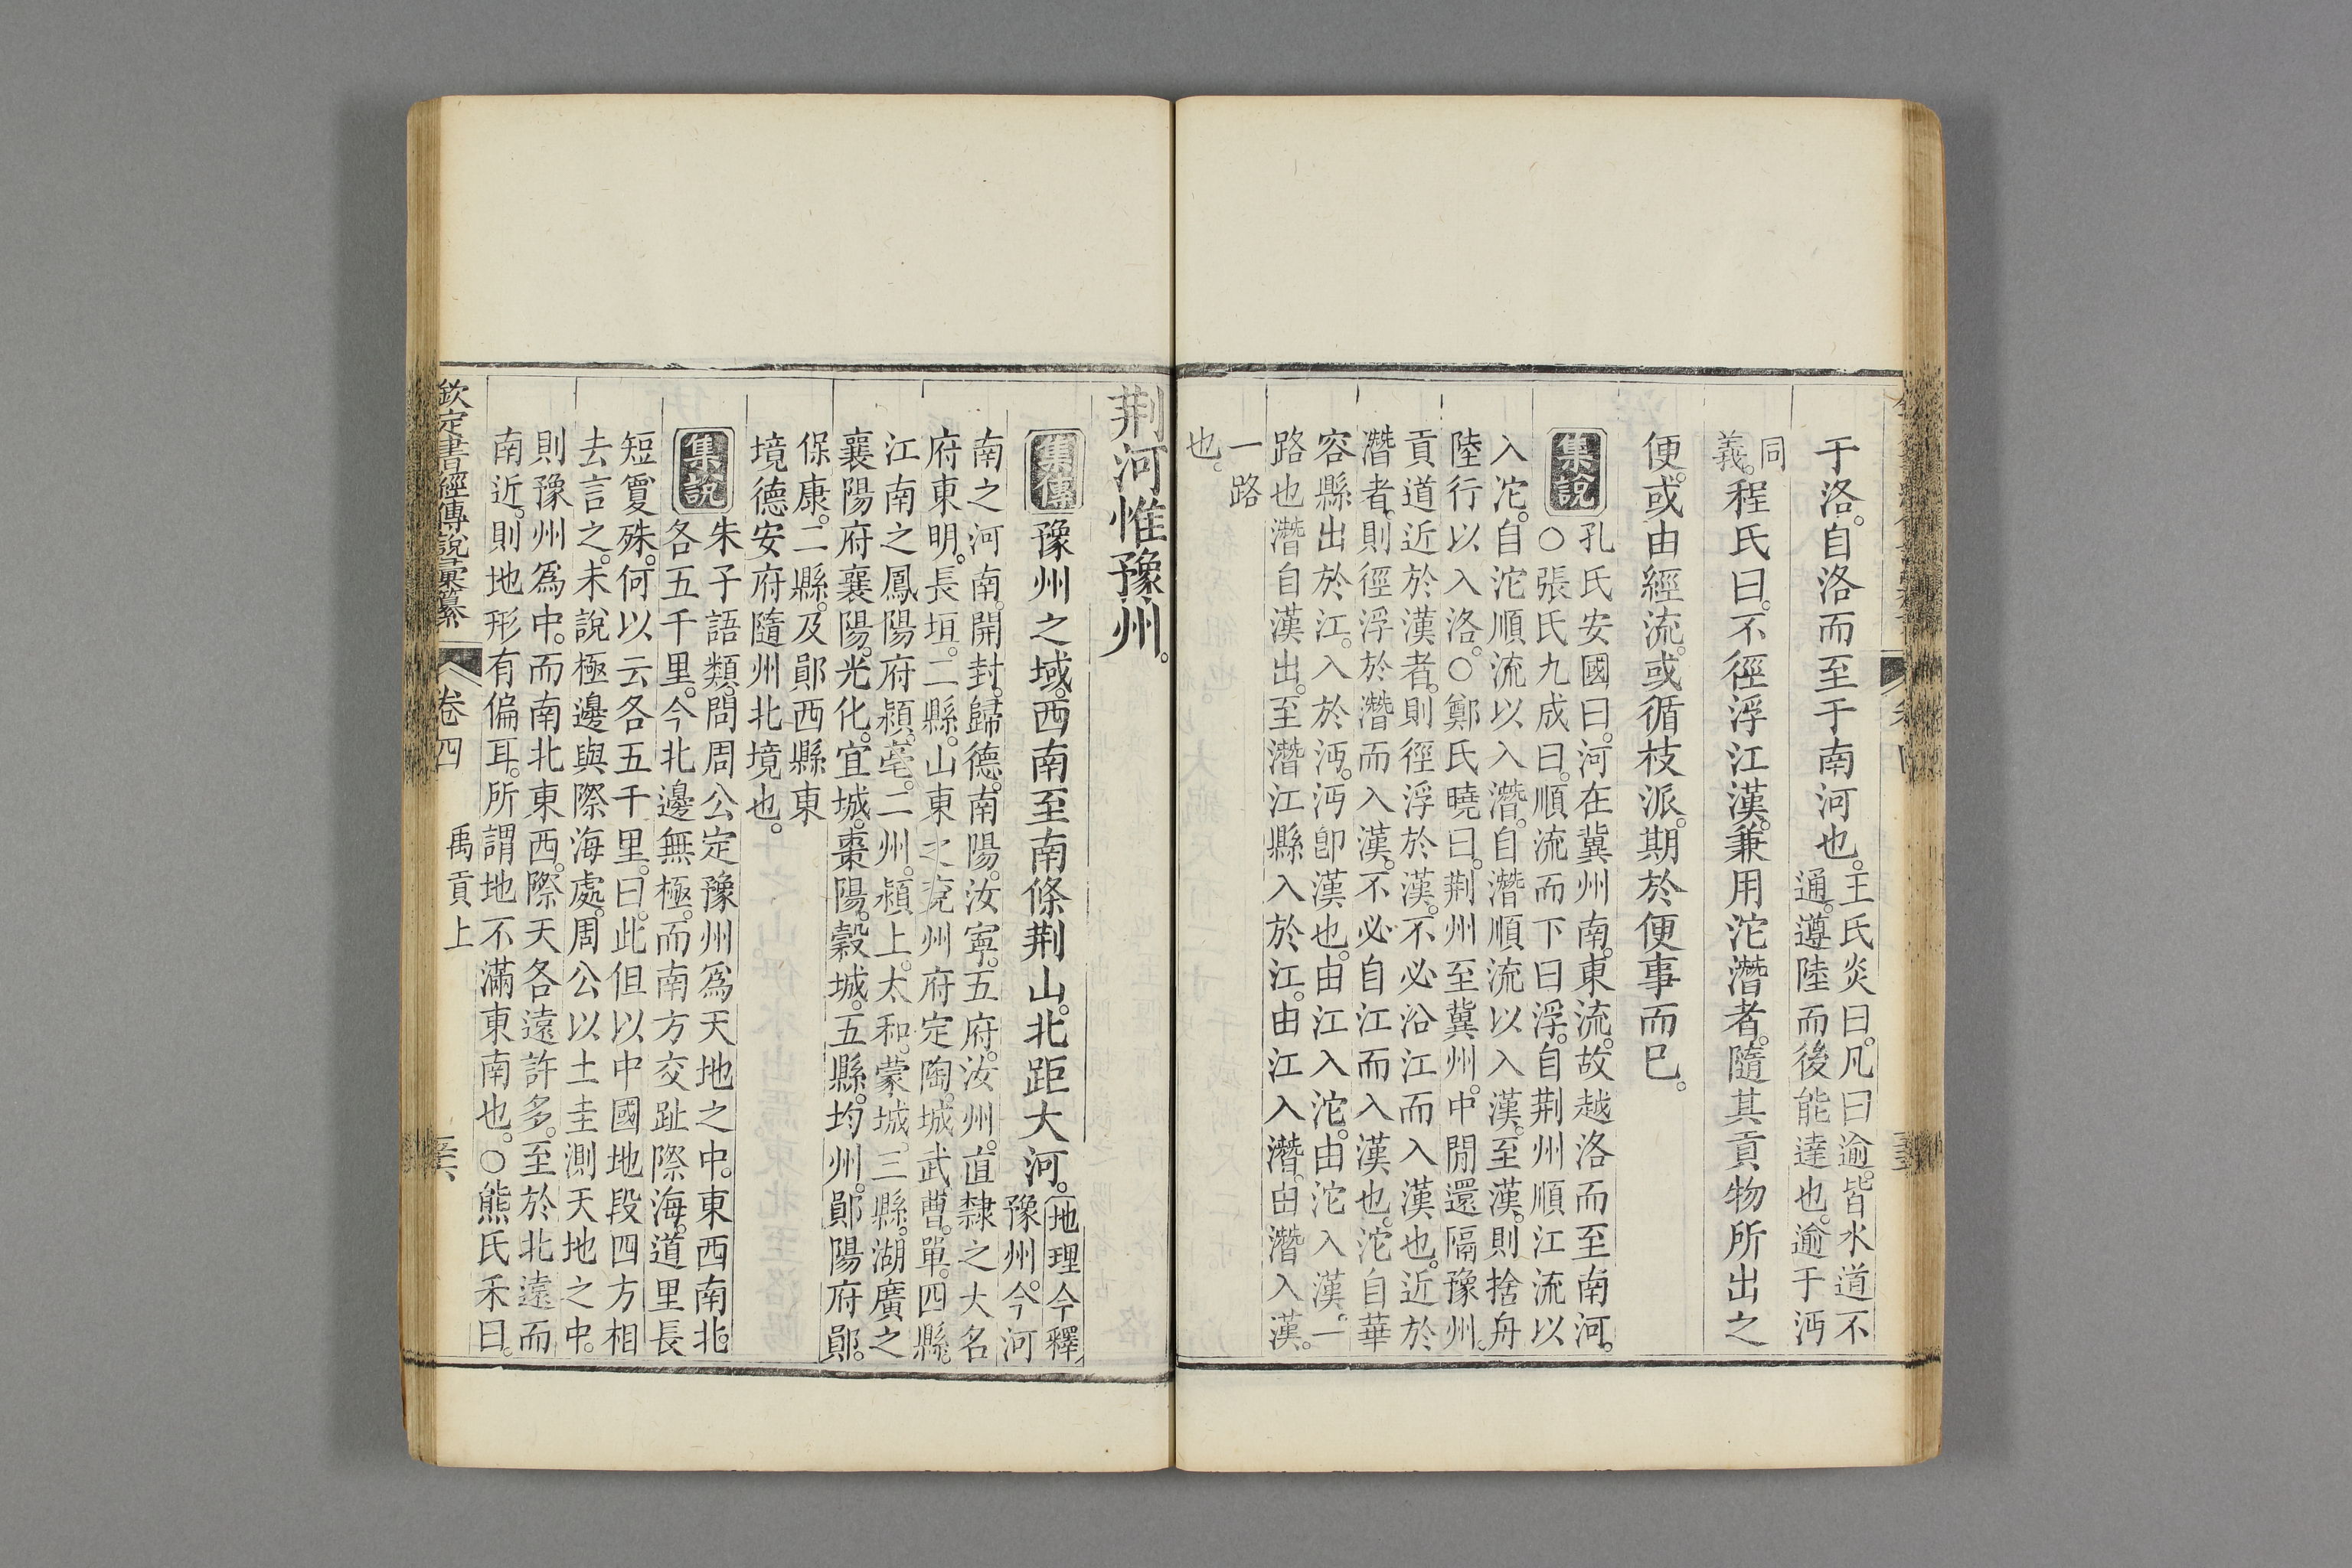 于洛。自洛而至于南河也。王氏炎曰。凡曰逾。皆水道不
通。遵陸而後能達也。逾于沔
同
義。程氏曰。不徑浮江漢。兼用沱潛者。隨其貢物所出之
便。或由經流。或循枝派。期於便事而已。
集說
孔氏安國曰。河在冀州南。東流。故越洛而至南河。
○張氏九成曰。順流而下曰浮。自荆州順江流以
入沱。自沱順流以入潛。自潛順流以入漢。至漢。則捨舟
陸行以入洛。○鄭氏曉曰。荆州至冀州。中閒還隔豫州。
貢道近於漢者。則徑浮於漢。不必沿江而入漢也。近於
潛者。則徑浮於潛而入漢。不必自江而入漢也。沱自華
容縣出於江。入於沔。沔卽漢也。由江入沱。由沱入漢。一
路也潛自漢出。至潛江縣入於江。由江入潛。由潛入漢。
一路
也。
荆河惟豫州。
集傳
豫州之域。西南至南條荆山。北距大河。地理今釋
豫州。今河
南之河南。開封。歸德。南陽。汝寧。五府。汝州。直隸之大名
府東明。長垣。二縣。山東之兗州府定陶。城武。曹。單。四縣。
江南之鳳陽府潁。亳。二州。潁上。太和。蒙城。三縣。湖廣之
襄陽府襄陽。光化。宜城。棗陽。穀城。五縣。均州。鄖陽府鄖。
保康。二縣。及鄖西縣東
境德安府隨州北境也。
集說
朱子語類。問周公定豫州爲天地之中。東西南北
各五千里。今北邊無極。而南方交趾際海。道里長
短夐殊。何以云各五千里。曰。此但以中國地段四方相
去言之。未說極邊與際海處。周公以土圭測天地之中。
則豫州爲中。而南北東西。際天各遠許多。至於北遠而
南近。則地形有偏耳。所謂地不滿東南也。○熊氏禾曰。
欽定書經傳說彙纂
卷四
禹貢上